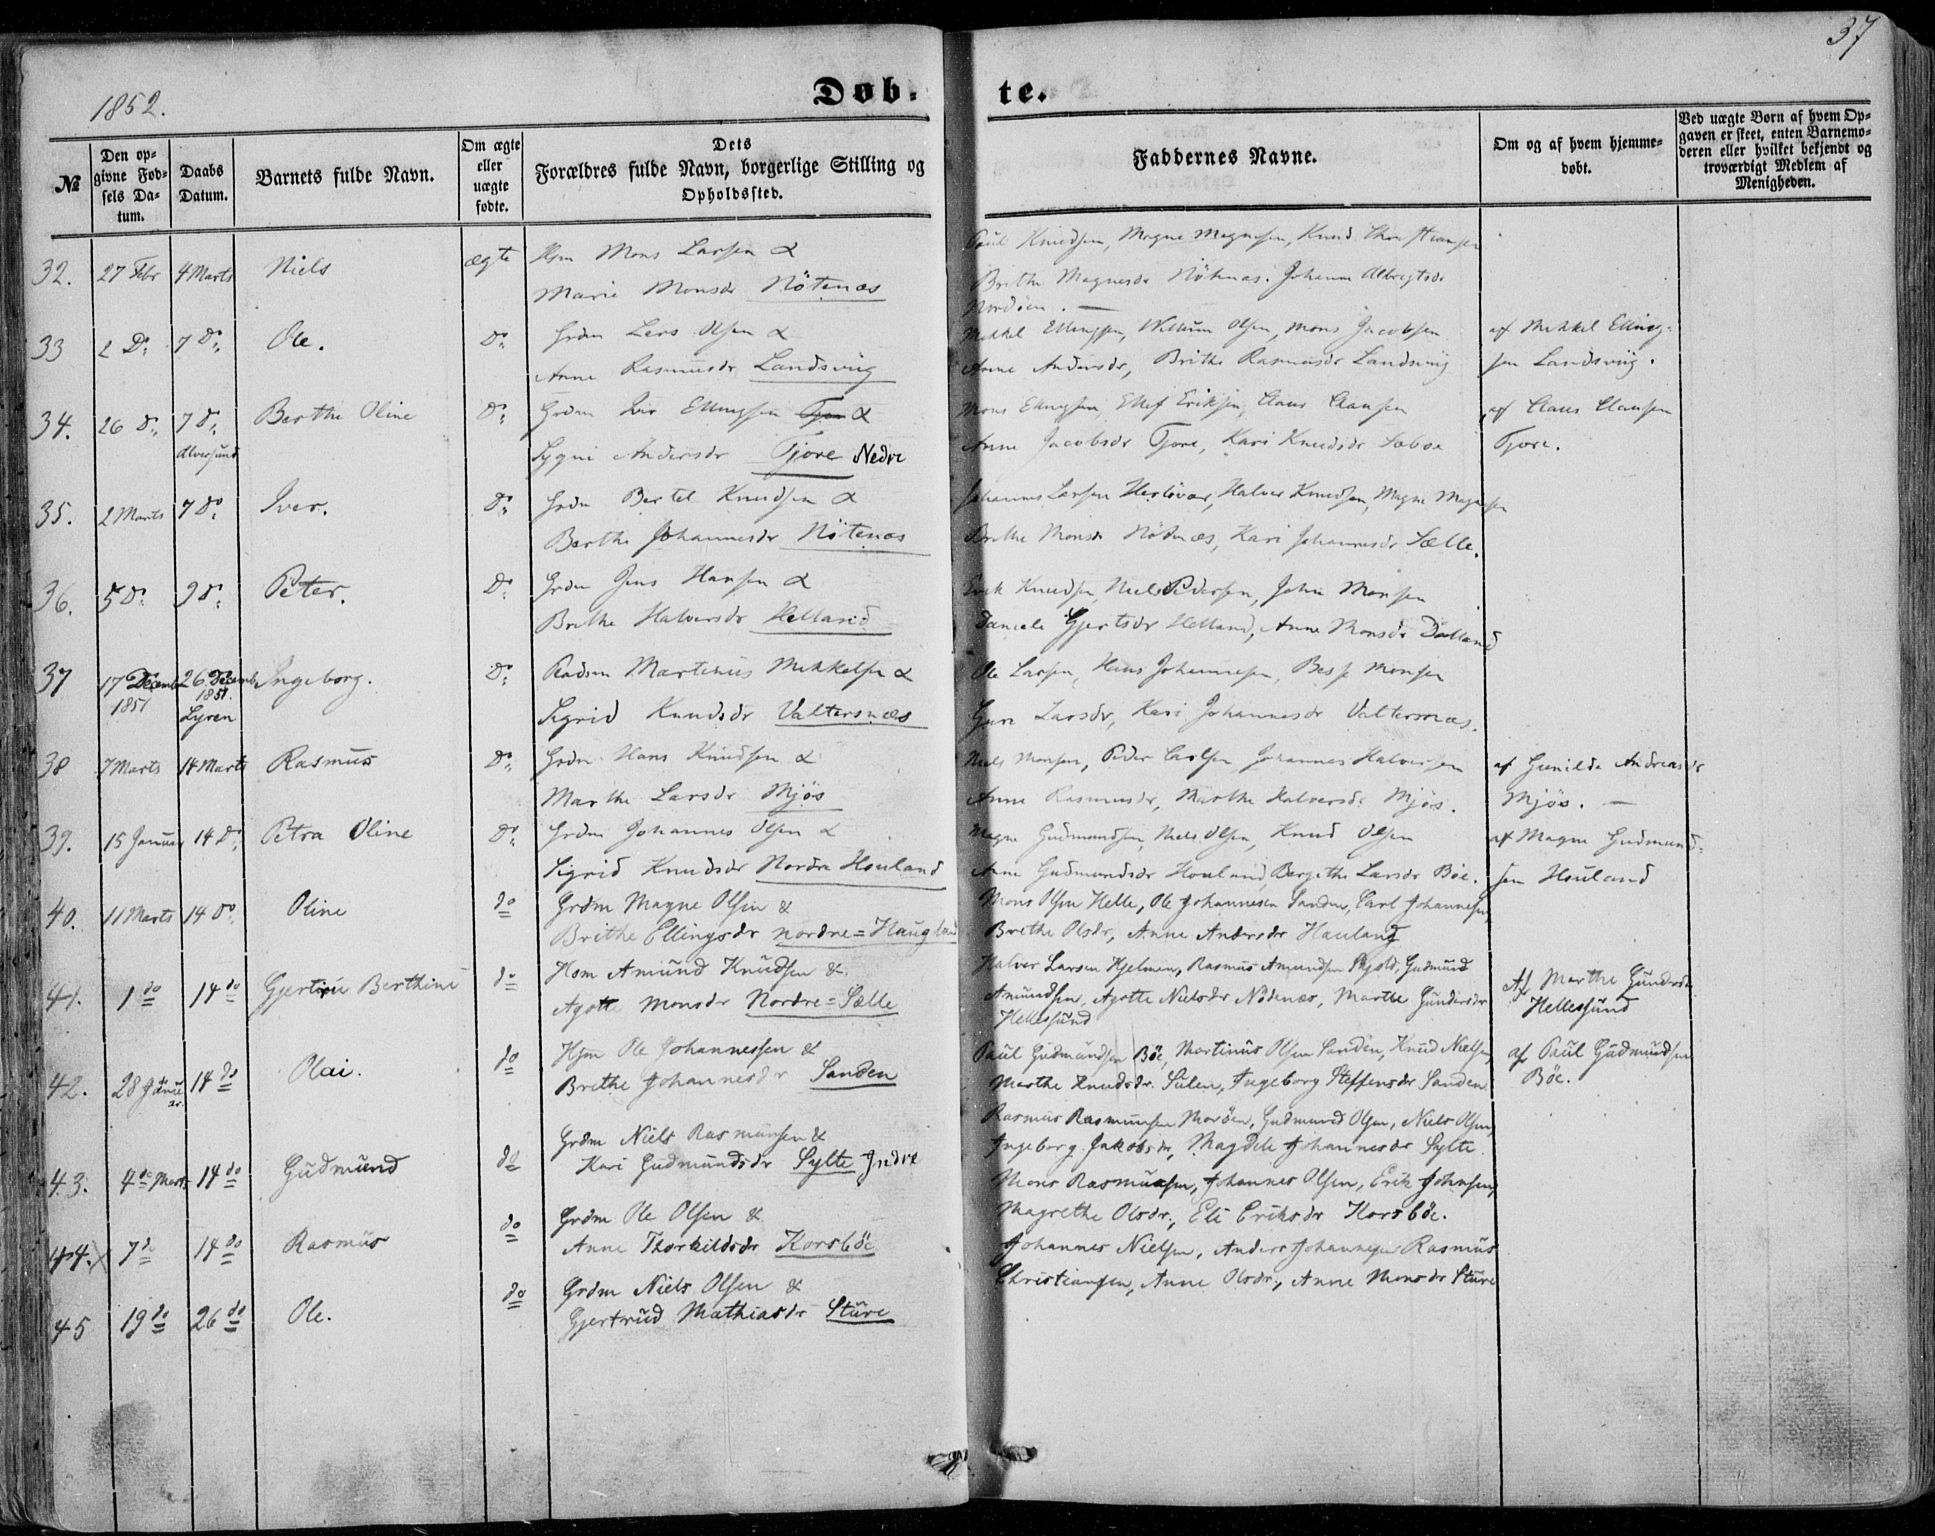 37
1852.
Døb- te.
№
Den op-
givne Fød-
sels Da-
tum.
Daabs
Datum.
Barnets fulde Navn.
Om ægte
eller
uægte
fødte.
Dets
Forældres fulde Navn, borgerlige Stilling og
Opholdssted.
Faddernes Navne.
Om og af hvem hjemme-
døbt.
Ved uægte Børn af hvem Op-
gaven er skeet, enten Barnemo-
deren eller hvilket bekjendt og
troværdigt Medlem af
Menigheden.
32. 27 Febr 4 Marts Niels ægte Mons Larsen &
Marie Monsdr Nötenæs
Paul Knudsen, Magne Magnesen, Knud
Brithe Magnesdr Nötnæs. Johanne Albregtsdr
Nordöen. —
33 2 Do 7 Do Ole. Do Grdm Lars Olsen &
Anne Rasmusdr Landsvig
Mikkel Ellingsen, Willum Olsen, Mons Jacobsen
Anne Andersdr, Brithe Rasmusdr Landsvig
af Mikkel Elling-
sen Landsviig.
34. 26 Do 7 Do Berthe Oline Do Grdm Iver Ellingsen &
Alversund
Sygni Andersdr Tjore Nedre
Mons Ellingsen, Ellef Eriksen, Claus Clausen
Anne Jacobsdr Tjore, Kari Knudsdr Sæboe
af Claus Clausen
Tjore.
35. 2 Marts 7 Do Iver. Do Grdm Bertel Knudsen &
Berthe Johannesdr Nötenæs
Johannes Larsen Herlövær, Halver Knudsen, Magne Magnesen
Brithe Monsdr Nötnæs, Kari Johannesdr Sælle.
36. 5 Do 9 Do Peter. Do Grdm Jens Hansen &
Brithe Halversdr Helland
Erik Knudsen, Niels Pedersen, John Monsen
Daniele Gjertsdr Helland, Anne Monsdr Dalland
37 17 Decemb 26 Decemb Ingeborg. Do Madsm Martinus Mikkelsen &
1851 1851.
Lyren
Sigrid Knudsdr Valtersnæs
Ole Larsen, Hans Johannesen, Besse Monsen
Guri Larsdr, Kari Johannesdr Valtersnæs.
38 7 Marts 14 Marts Rasmus Do Grdm Hans Knudsen &
Marthe Larsdr Mjös
Niels Monsen, Peder Carlsen Johannes Halversen
Anne Rasmusdr, Marthe Halversdr Mjös.
af Gunilde Andreasdr
Mjös. —
39. 15 Januar 14 Do Petra Oline Do Grdm Johannes Olsen &
Sigrid Knudsdr Nordre Houland
Magne Gudmundsen, Niels Olsen, Knud Olsen
Anne Gudmundsdr Houland, Bergithe Larsdr Böe.
af Magne Gudmund-
sen Houland
40. 11 Marts 14 Do Oline do Grdm Magne Olsen &
Brithe Ellingsdr nordre=Haugland
Mons Olsen Helle, Ole Johannesen Sanden, Carl Johannesen
Brethe Olsdr, Anne Andersdr Hauland
41. 1 do 14 do Gjertru Berthine do Hsm Amund Knudsen &
Agotte Monsdr Nordre=Sælle
Halver Larsen Hjelmen, Rasmus Amundsen Skjold, Gudmund
Amundsen, Agotte Nielsdr Nödenæs, Marthe Gundersdr
Hellesund
Af Marthe Gundersdr
Hellesund
42. 28 Janu 14 do Olai. do Hsm Ole Johannessen &
ar.
Brithe Johannesdr Sanden
Paul Gudmundsen Böe, Martinus Olsen Sanden, Knud Nielsen
Marthe Knudsdr Sulen, Ingeborg Steffensdr Sanden
af Paul Gudmundsen
Böe.
43. 4 de Marts 14 do Gudmund do Grdm Niels Rasmunsen &
Kari Gudmundsdr Sylte Indre
Rasmus Rasmunsen Maröen, Gudmund Olsen, Niels Olsen,
Ingeborg Jakobsdr, Magdele Johannesdr Sylte
44. 7 do 14 do Rasmus do Grdm Ole Olsen &
Anne Thorkildsdr Korsböe
Mons Rasmussen, Johannes Olsen, Erik Johnsen,
Magrethe Olsdr., Eli Eriksdr Korsböe.
45 19 do 26 do Ole. do Grdm Niels Olsen &
Gjertrud Mathiasdr Sture
Johannes Nielsen, Anders Johannesen Rasmus
Christiansen, Anne Olsdr, Anne Monsdr Sture